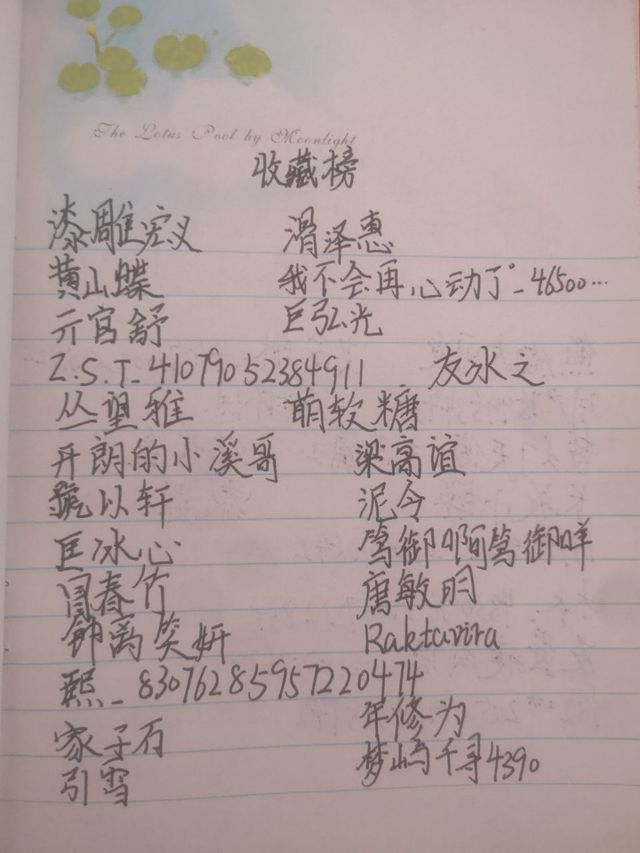 The Lotus Pool by Moonlight
收藏榜
漆雕宏义 滑泽惠
黄山蝶 我不会再心动了_46500…
亓官舒 巨弘光
Z.S.T_41079052384911 友冰之
丛望雅 萌软糖
开朗的小溪哥 梁高谊
虢以轩 泥今
匡冰心 笃御啊笃御咩
闾春竹 唐敏明
钟离笑妍 Raktavira
熙_83076285957220474
年修为
家子石 梦屿千寻4390
引雪